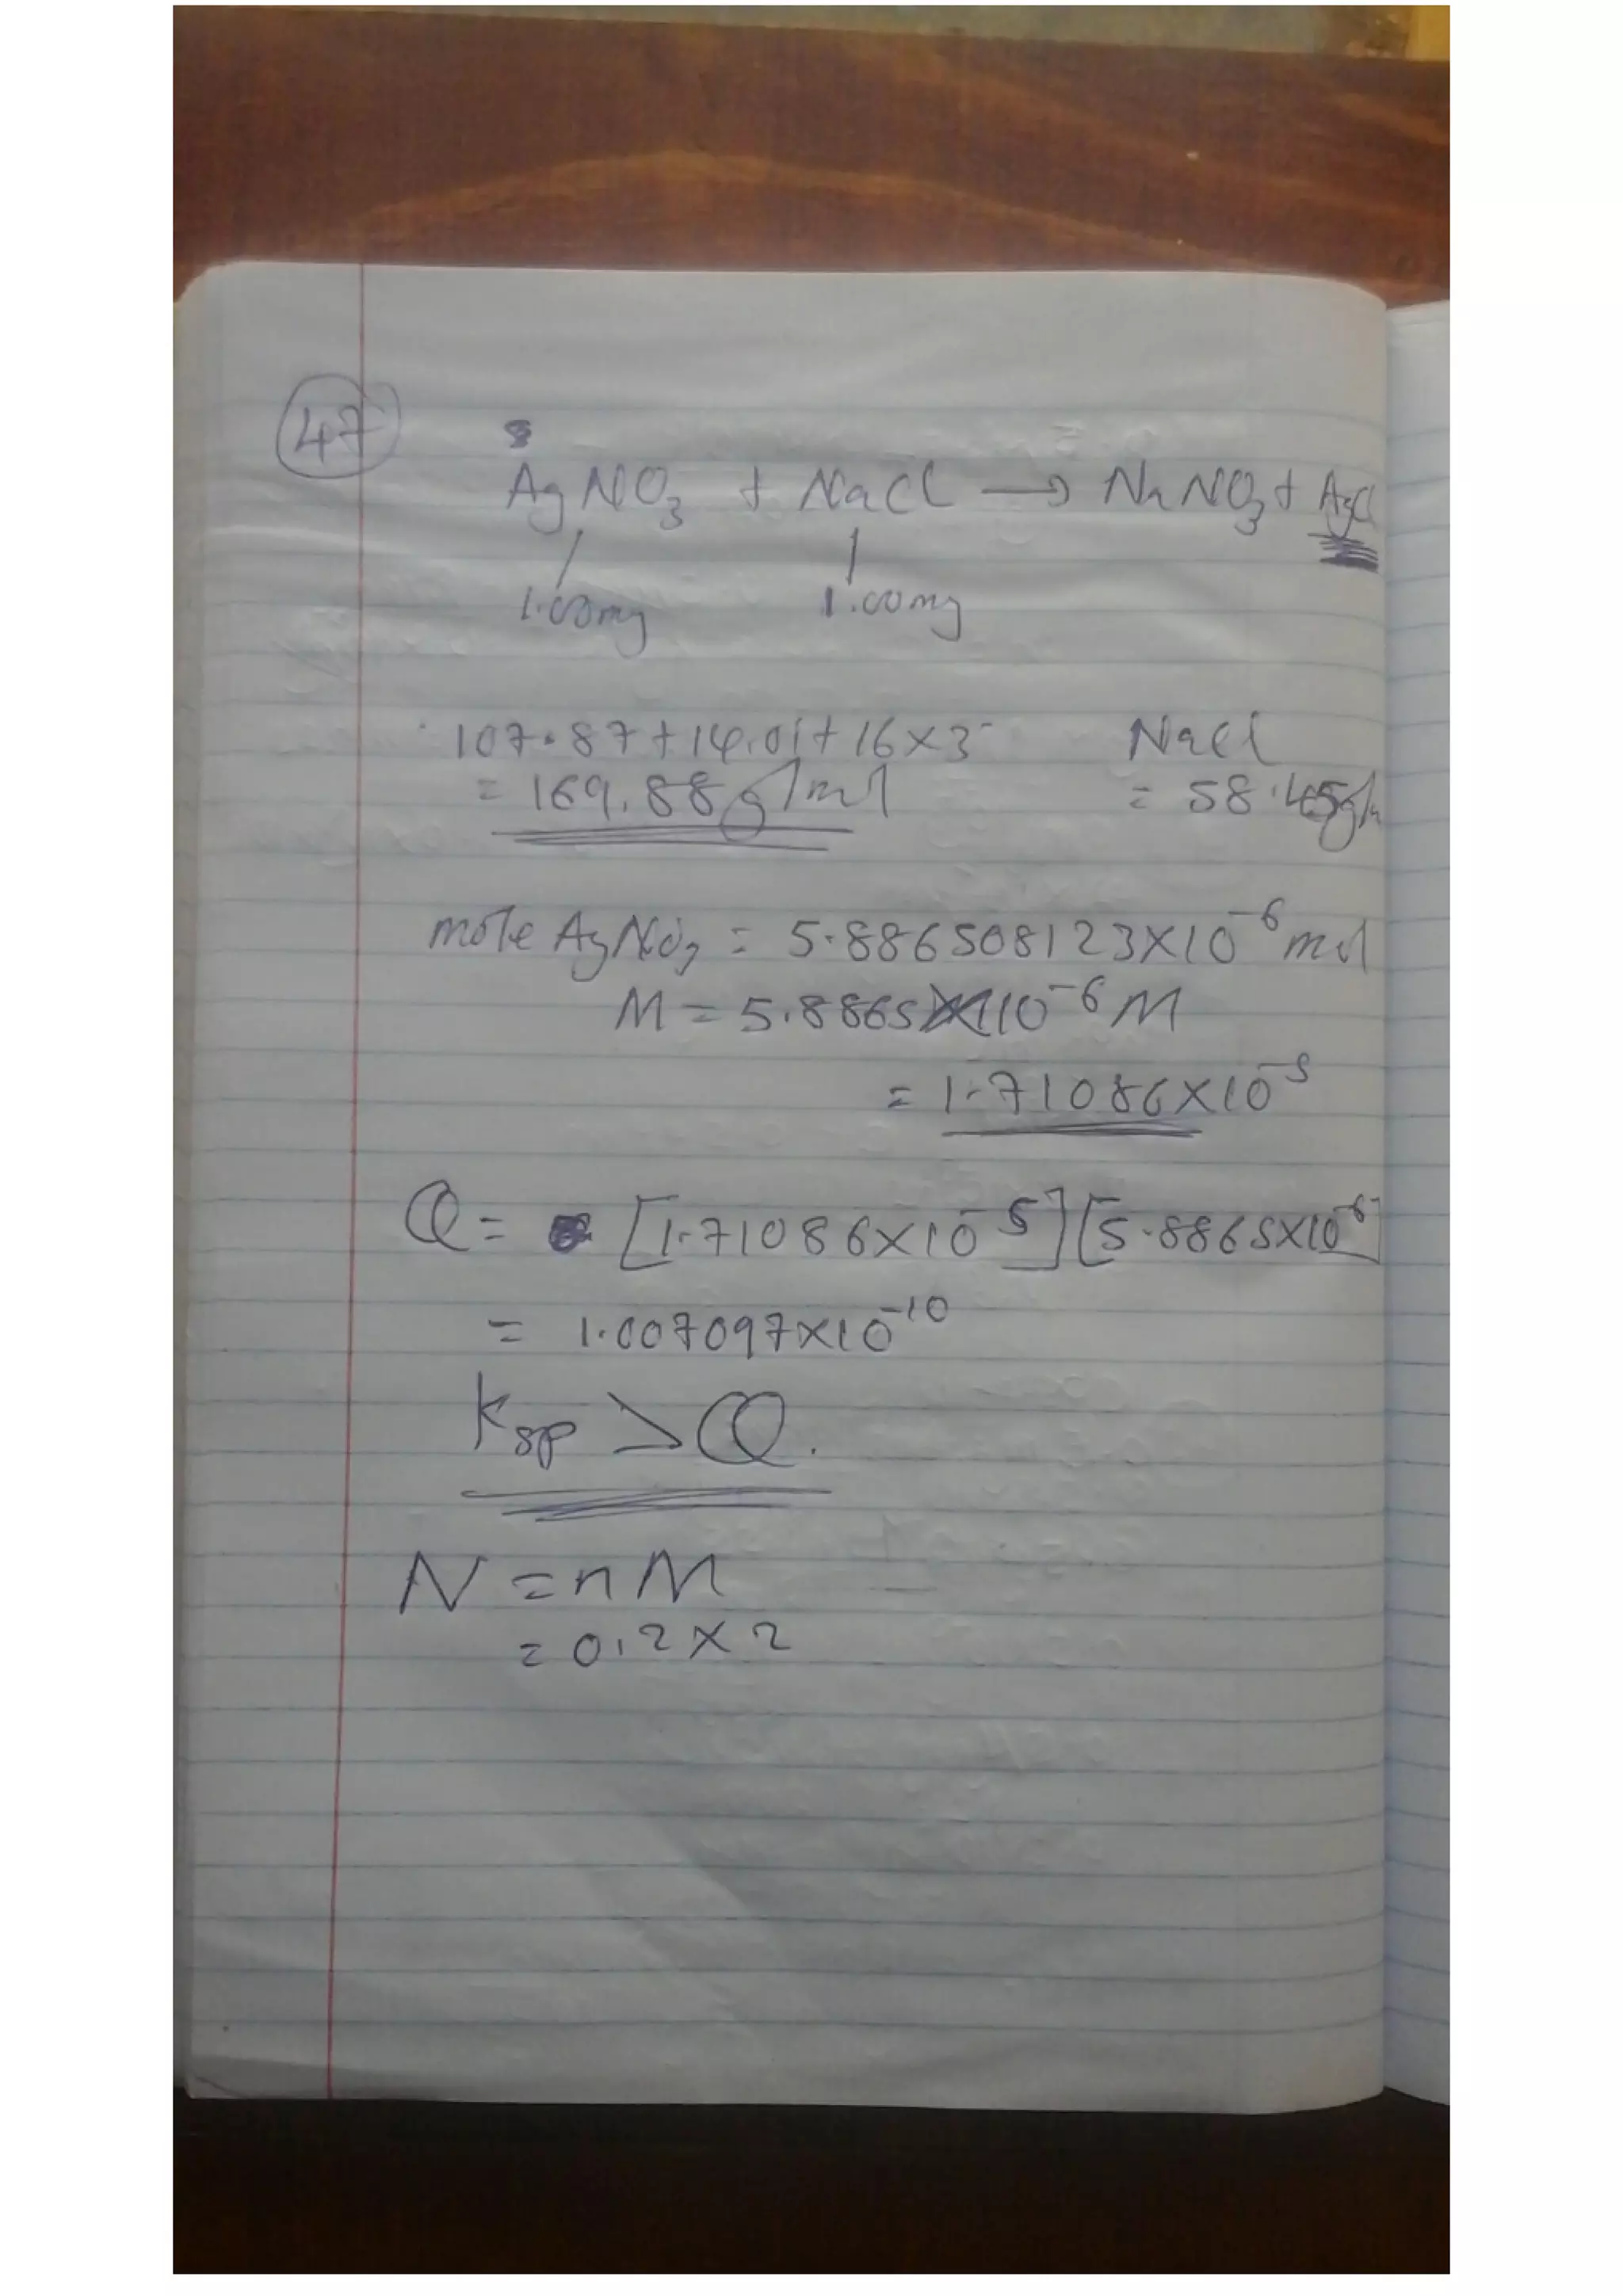 47
AgNO3 + NaCl → NaNO3 + AgCl
1.00mg 1.00mg
107.87 + 14.01 + 16×3 NaCl
= 169.88 g/mol = 58.45g/m
mole AgNO3 = 5.886508123×10^-6 mol
M = 5.8865×10^-6 M
= 1.71086×10^-5
Q = [1.71086×10^-5][5.8865×10^-6]
= 1.007097×10^-10
Ksp > Q.
N = nM
= 0.2 × 2